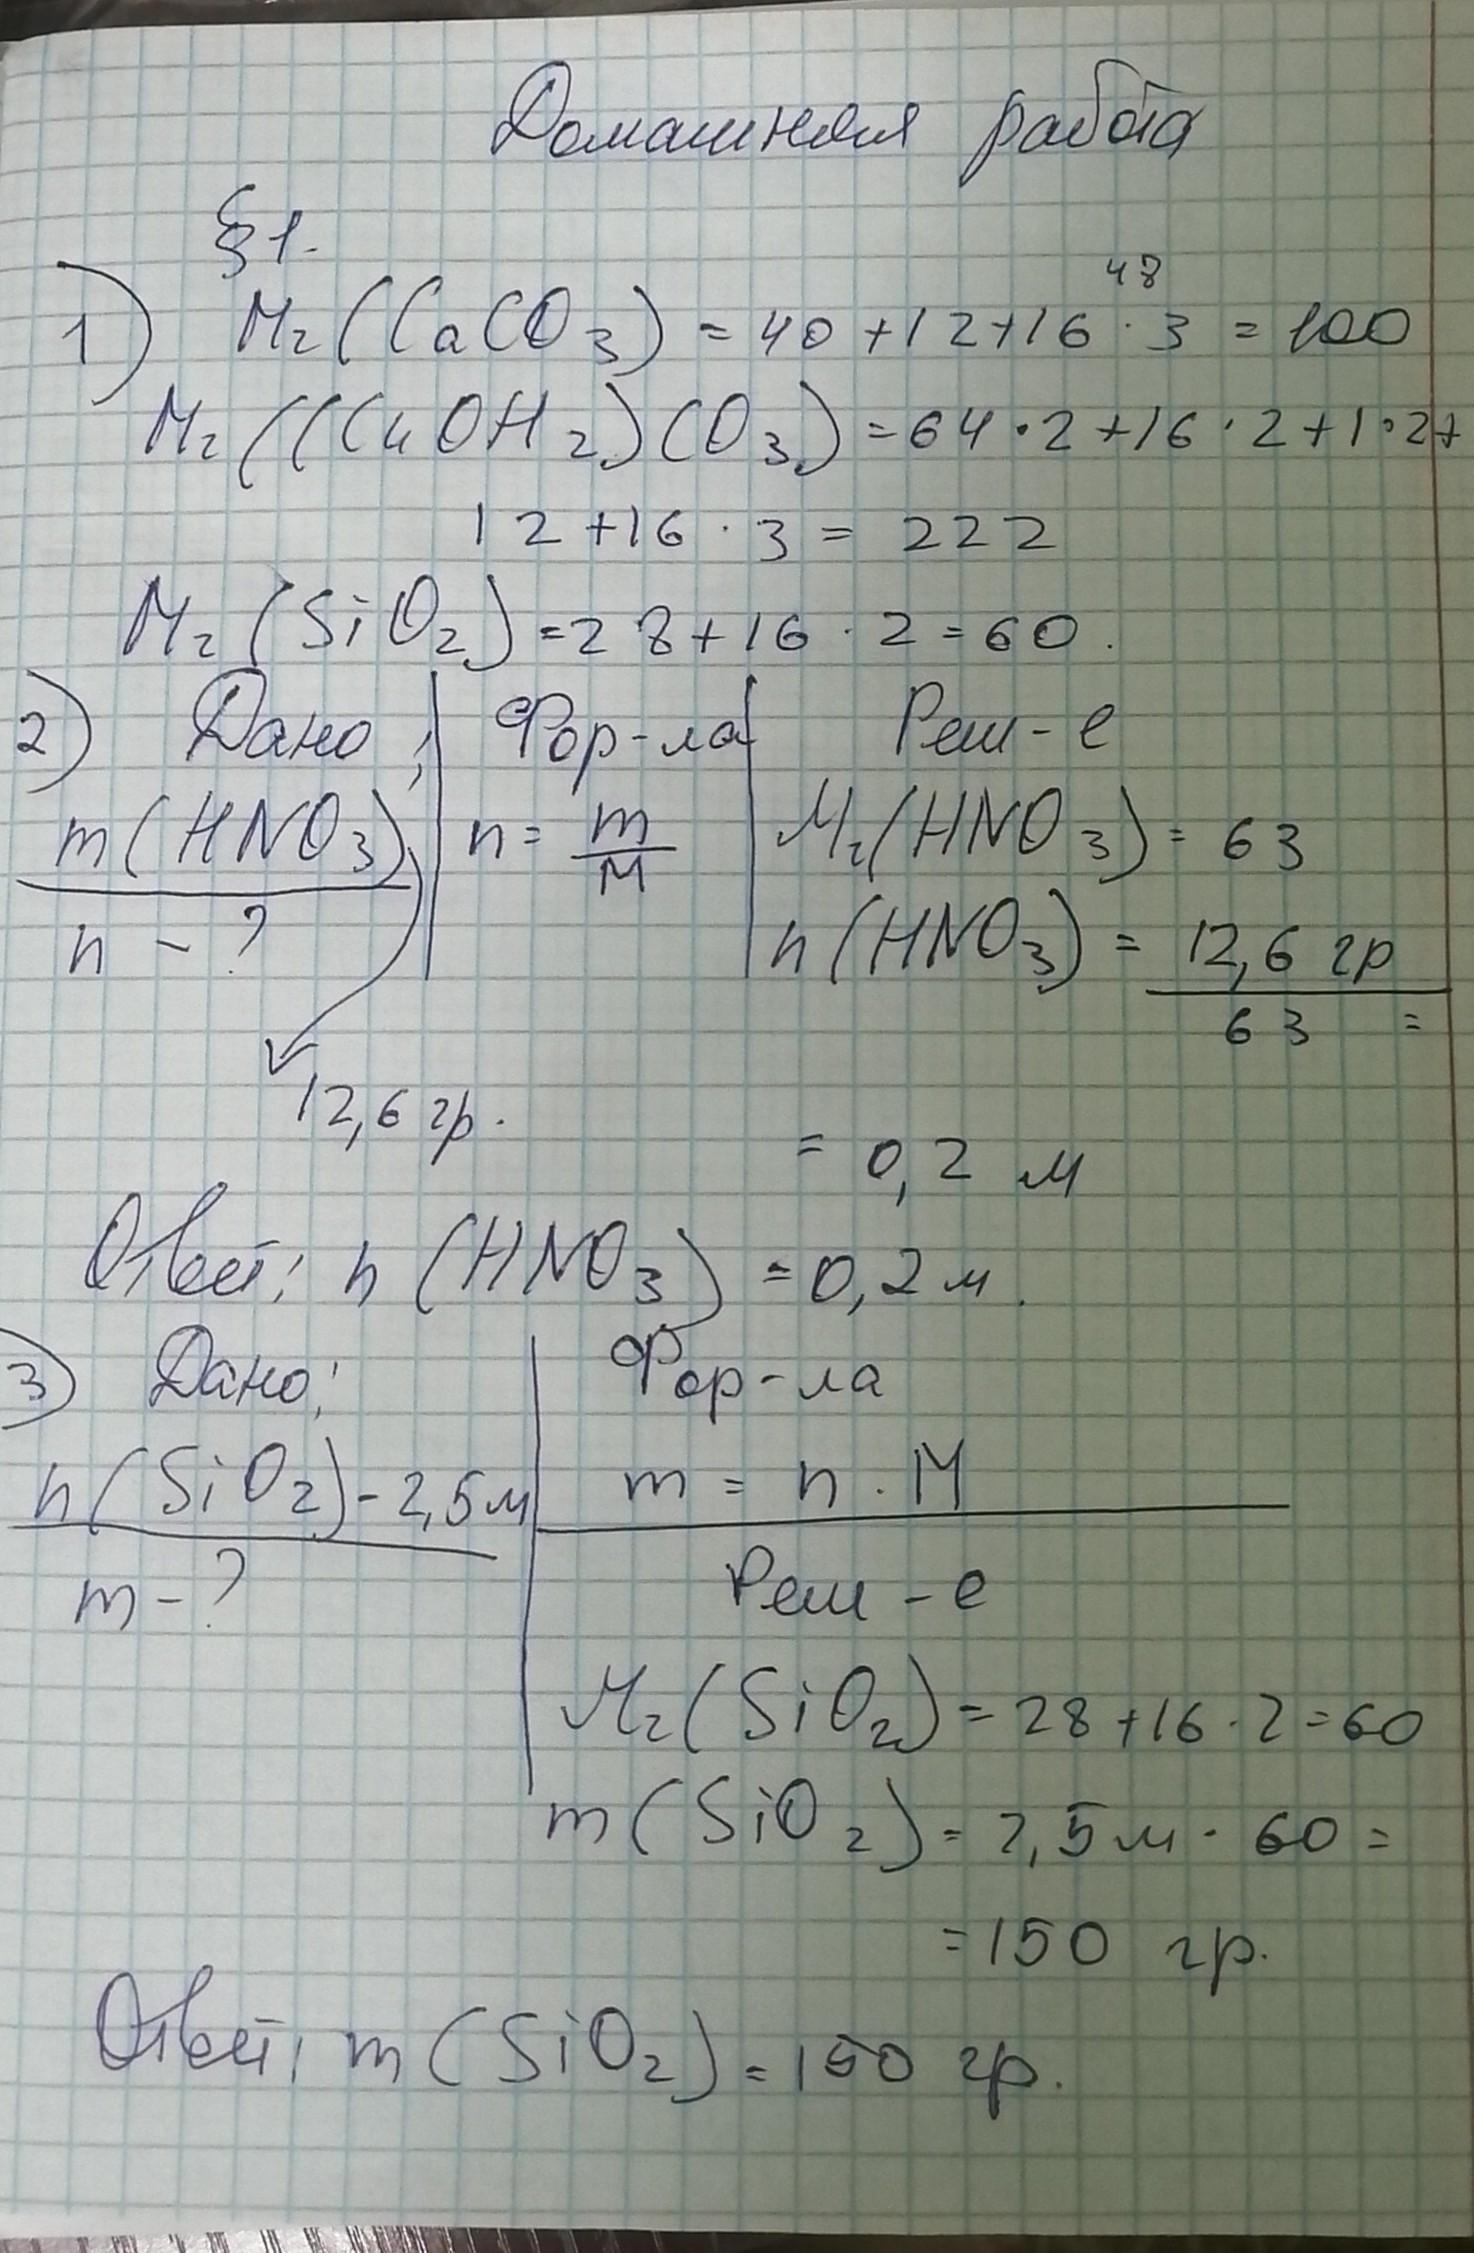 Домашняя работа
§1.
48
1) Mr(CaCO3) = 40 + 12 + 16 · 3 = 100
Mr((CuOH2)CO3) = 64 · 2 + 16 · 2 + 1 · 2 +
12 + 16 · 3 = 222
Mr(SiO2) = 28 + 16 · 2 = 60.
2) Дано: Фор-ла Реш-е
m(HNO3) n = m/M Mr(HNO3) = 63
n - ? n(HNO3) = 12,6 гр / 63 =
12,6 гр.
= 0,2 м
Ответ: n(HNO3) = 0,2 м.
3) Дано: Фор-ла
n(SiO2) - 2,5 м m = n · M
m - ? Реш-е
Mr(SiO2) = 28 + 16 · 2 = 60
m(SiO2) = 2,5 м · 60 =
= 150 гр.
Ответ: m(SiO2) = 150 гр.